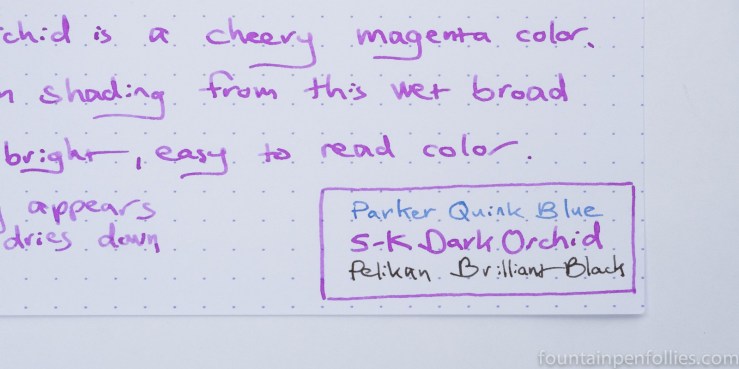 rchid is a cheery magenta color.
n shading from this wet broad
bright, easy to read color.
appears
dries down
Parker Quink Blue
S-K Dark Orchid
Pelikan Brilliant Black
fountainpenfollies.com